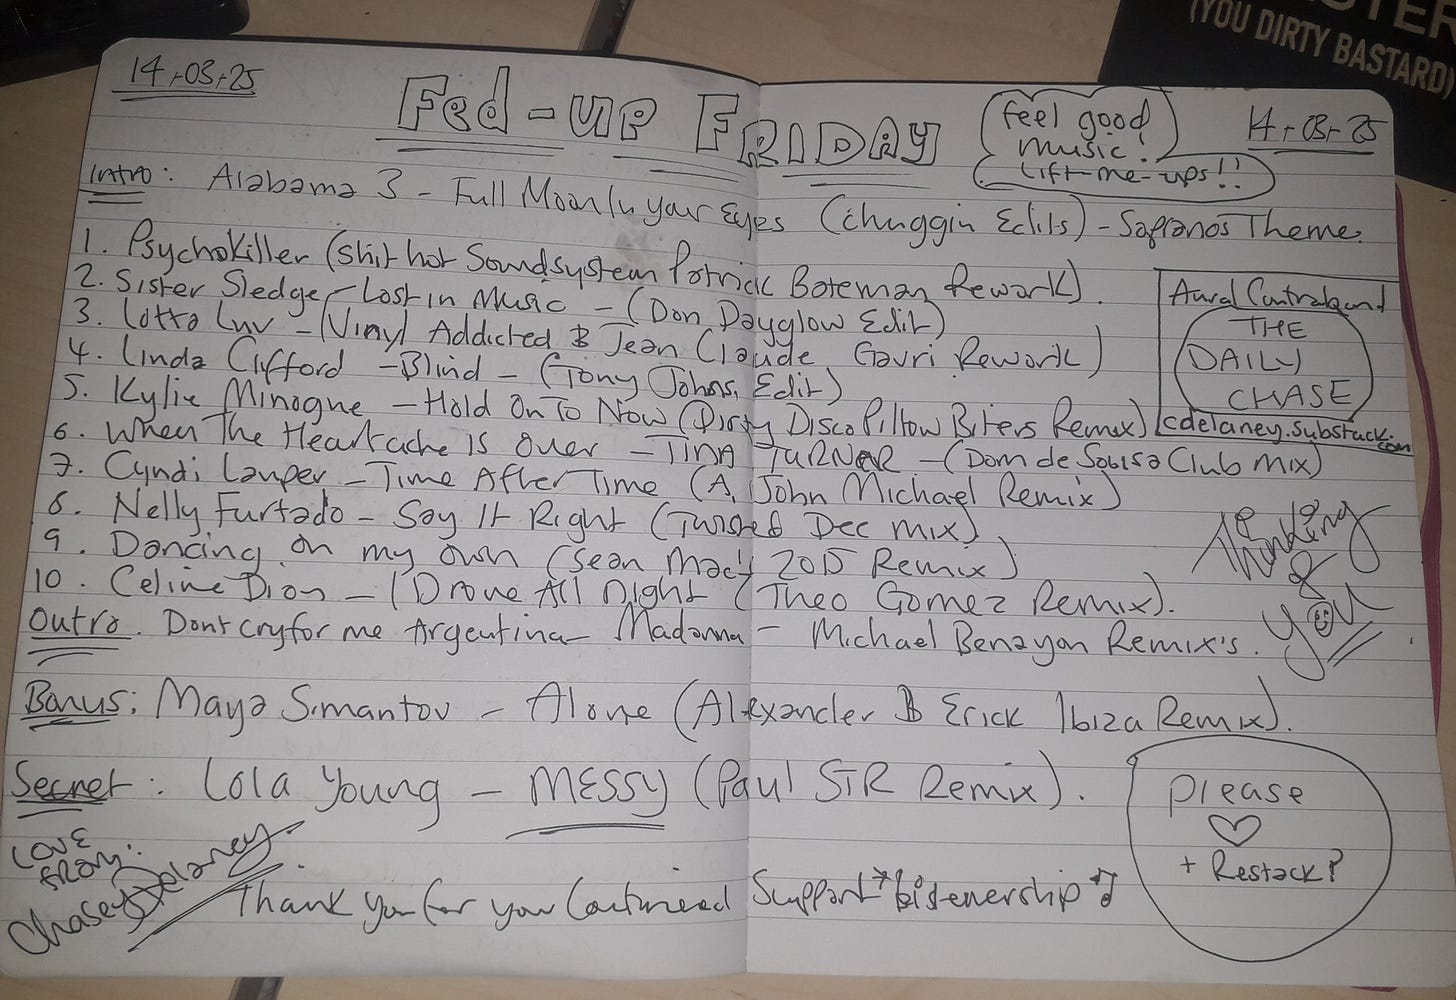 STER
(YOU DIRTY BASTARD)
14-03-25
Fed-up FRIDAY
feel good
music!
Lift-me-ups!!
14-03-25
Intro: Alabama 3 - Full Moon In your Eyes (Chuggin Edits) - Sopranos Theme.
1. Psychokiller (Shit hot Soundsystem Patrick Bateman Rework).
2. Sister Sledge - Lost in Music - (Don Dayglow Edit)
3. Lotta Luv - (Vinyl Addicted & Jean Claude Gavri Rework)
4. Linda Clifford - Blind - (Tony Johns Edit)
5. Kylie Minogue - Hold On To Now (Dirty Disco Pillow Biters Remix)
6. When The Heartache Is Over - TINA TURNAR - (Dom de Sousa Club Mix)
7. Cyndi Lauper - Time After Time (A. John Michael Remix)
8. Nelly Furtado - Say It Right (Twisted Dee Mix)
9. Dancing on my own (Sean Mac Remix)
10. Celine Dion - I Drove All Night (Theo Gomez Remix).
Outro. Dont cry for me Argentina - Madonna - Michael Benayon Remix's.
Aural Contraband
THE
DAILY
CHASE
cdelaney.substack.com
Thinking
of
You
Bonus: Maya Simantov - Alone (Alexander & Erick Ibiza Remix).
Secret: Lola Young - MESSY (Paul STR Remix).
Please
+ Restack?
LOVE
FROM:
Chasey Delaney.
Thank you for your Continued Support + listenership